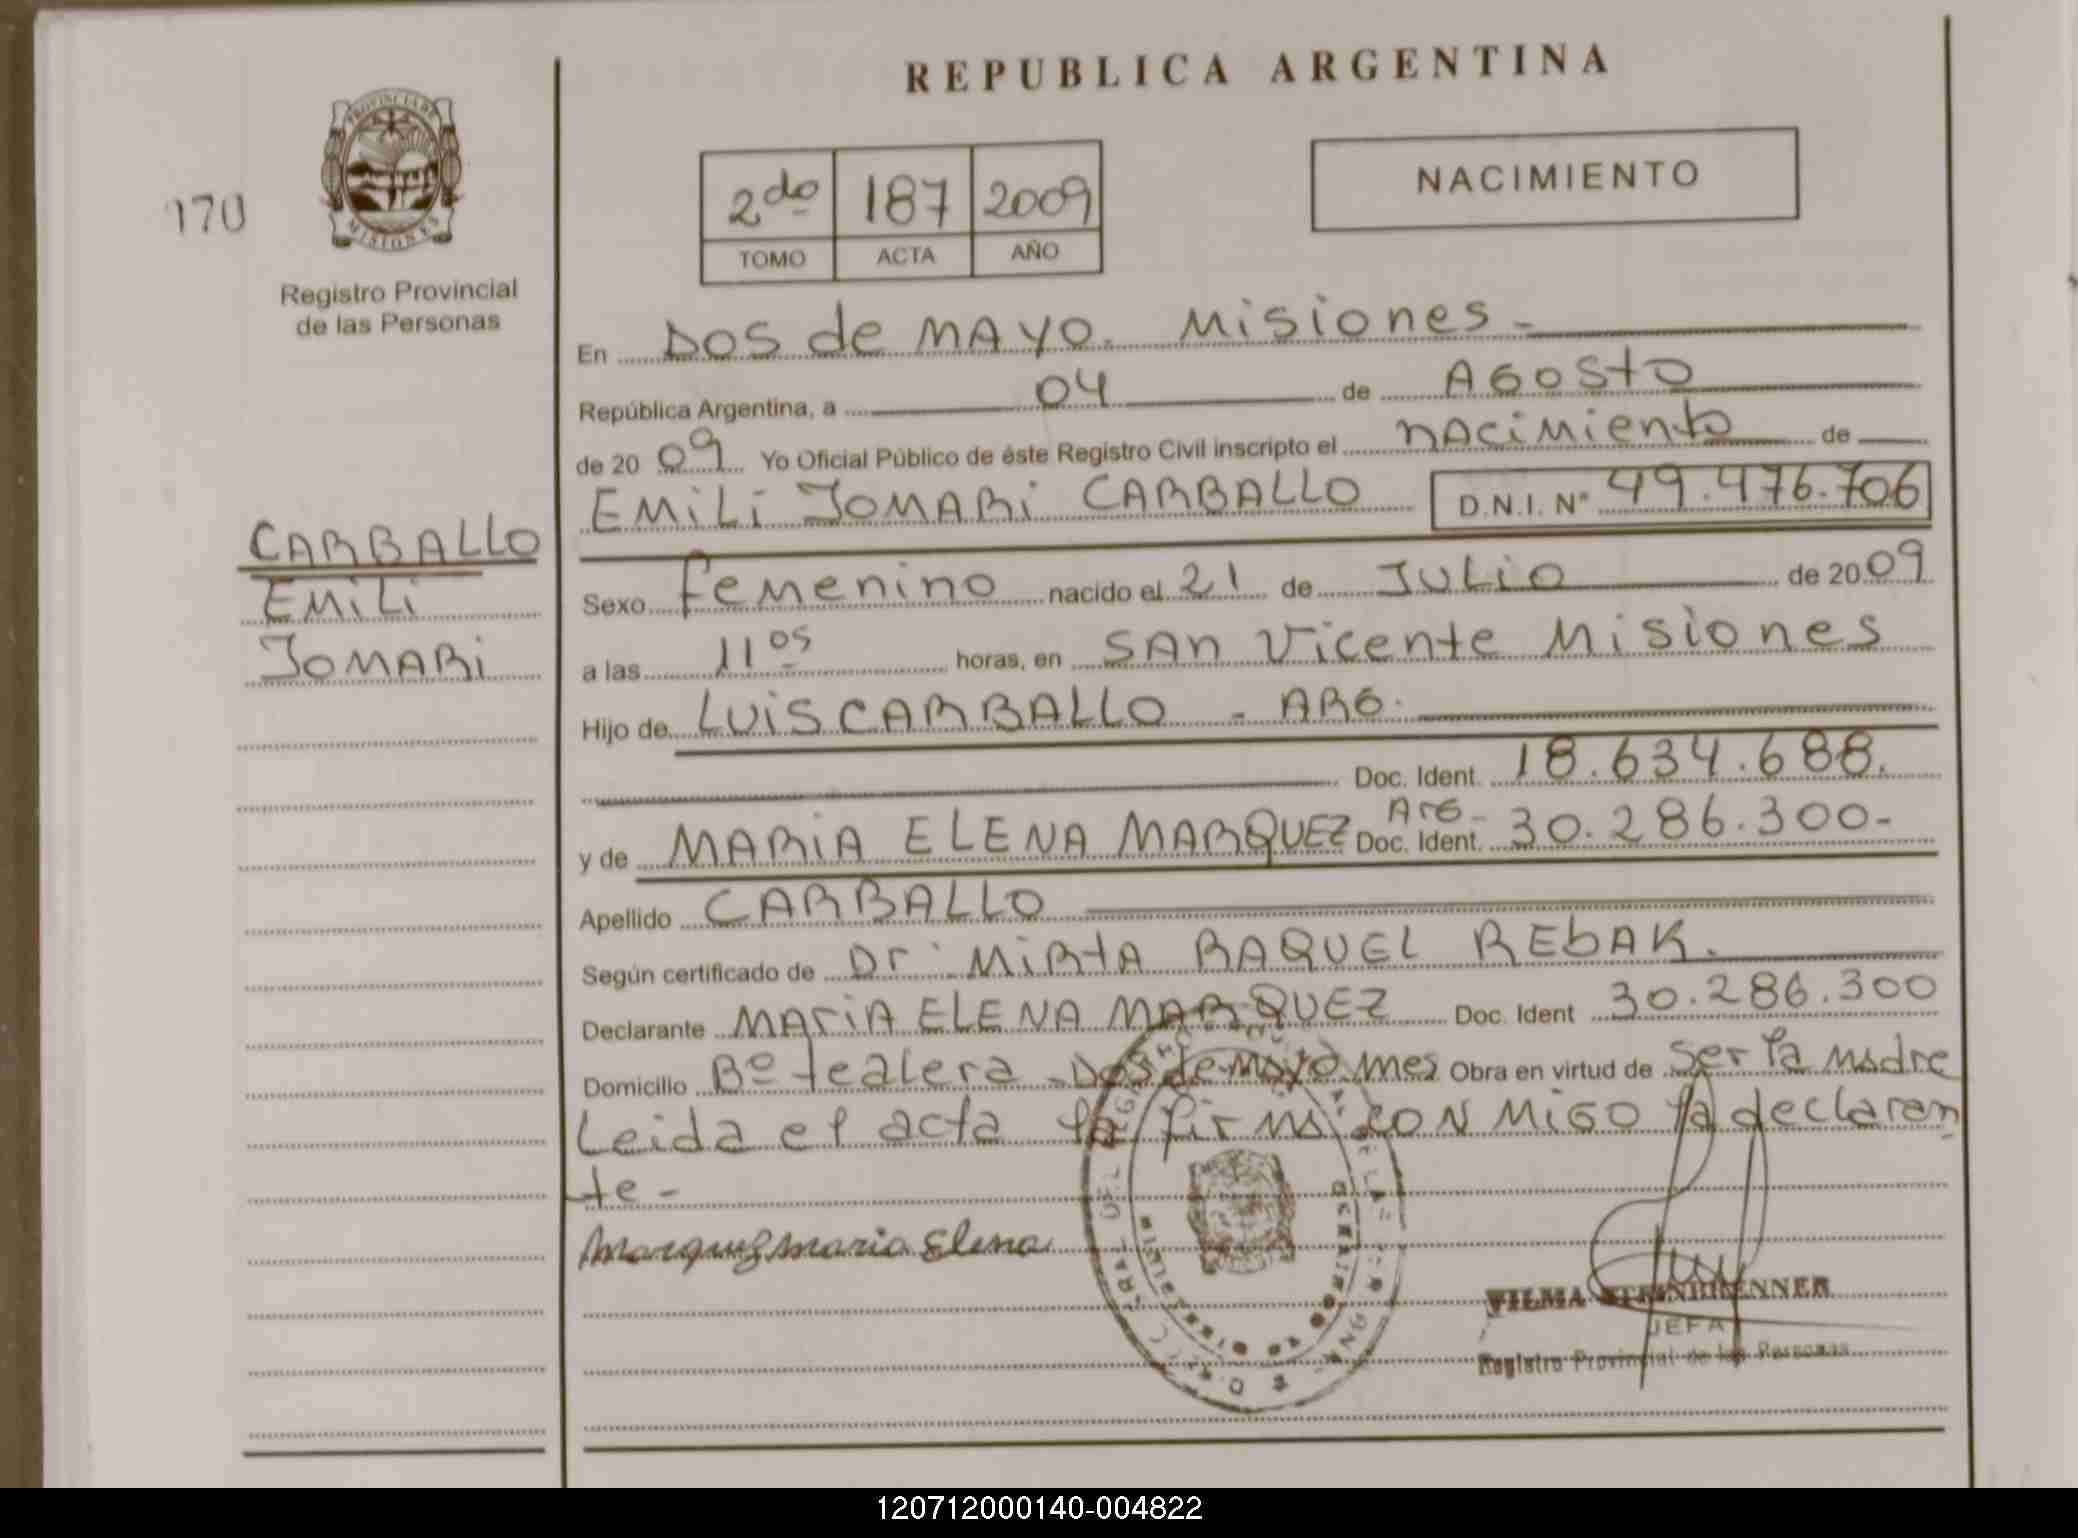 REPUBLICA ARGENTINA
170
PROVINCIA DE
MISIONES
Registro Provincial
de las Personas
2do 187 2009
TOMO ACTA AÑO
NACIMIENTO
En Dos de MAYO. Misiones -
República Argentina, a 04 de AGOSTO
de 2009 Yo Oficial Público de éste Registro Civil inscripto el nacimiento de
EMILI JOMARI CARBALLO D.N.I. Nº 49.476.706
CARBALLO
EMILI
JOMARI
Sexo femenino nacido el 21 de JULIO de 2009
a las 11os horas, en SAN Vicente Misiones
Hijo de LUIS CARBALLO - ARG.
Doc. Ident. 18.634.688.
y de MARIA ELENA MARQUEZ Arg- Doc. Ident. 30.286.300-
Apellido CARBALLO
Según certificado de Dr. MIRTA RAQUEL REBAK.
Declarante MARIA ELENA MARQUEZ Doc. Ident 30.286.300
Domicilio Bº tealera - Dos de mayo mes Obra en virtud de ser la madre
Leida el acta la firma CONMIGO la declaran
te -
Marquez maria Elena
VILMA STEINBRENNER
JEFA
Registro Provincial de las Personas
120712000140-004822